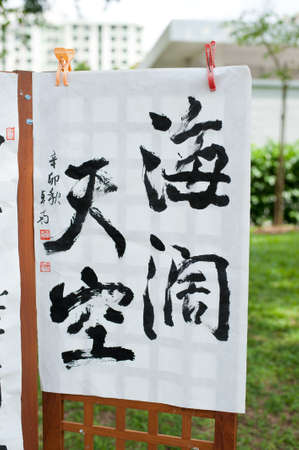 海阔
天空
辛卯秋